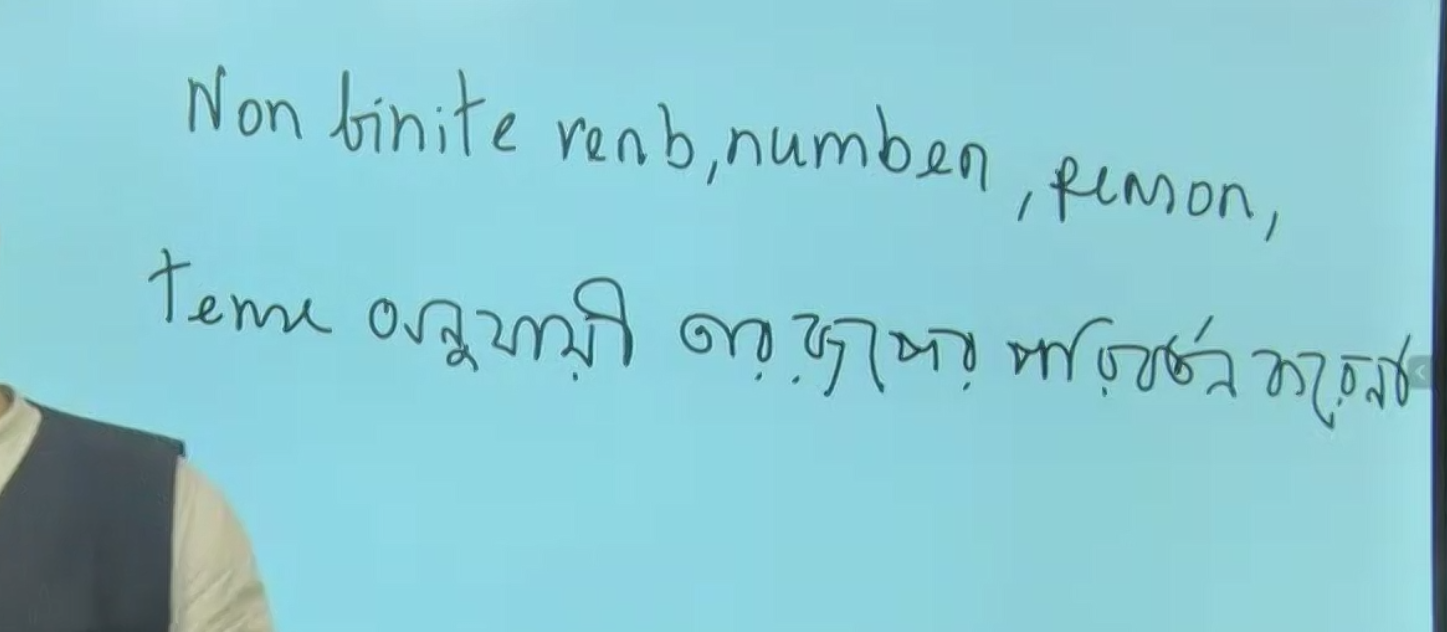 Non finite verb, number, person,
Tense অনুযায়ী তার রূপের পরিবর্তন করে না